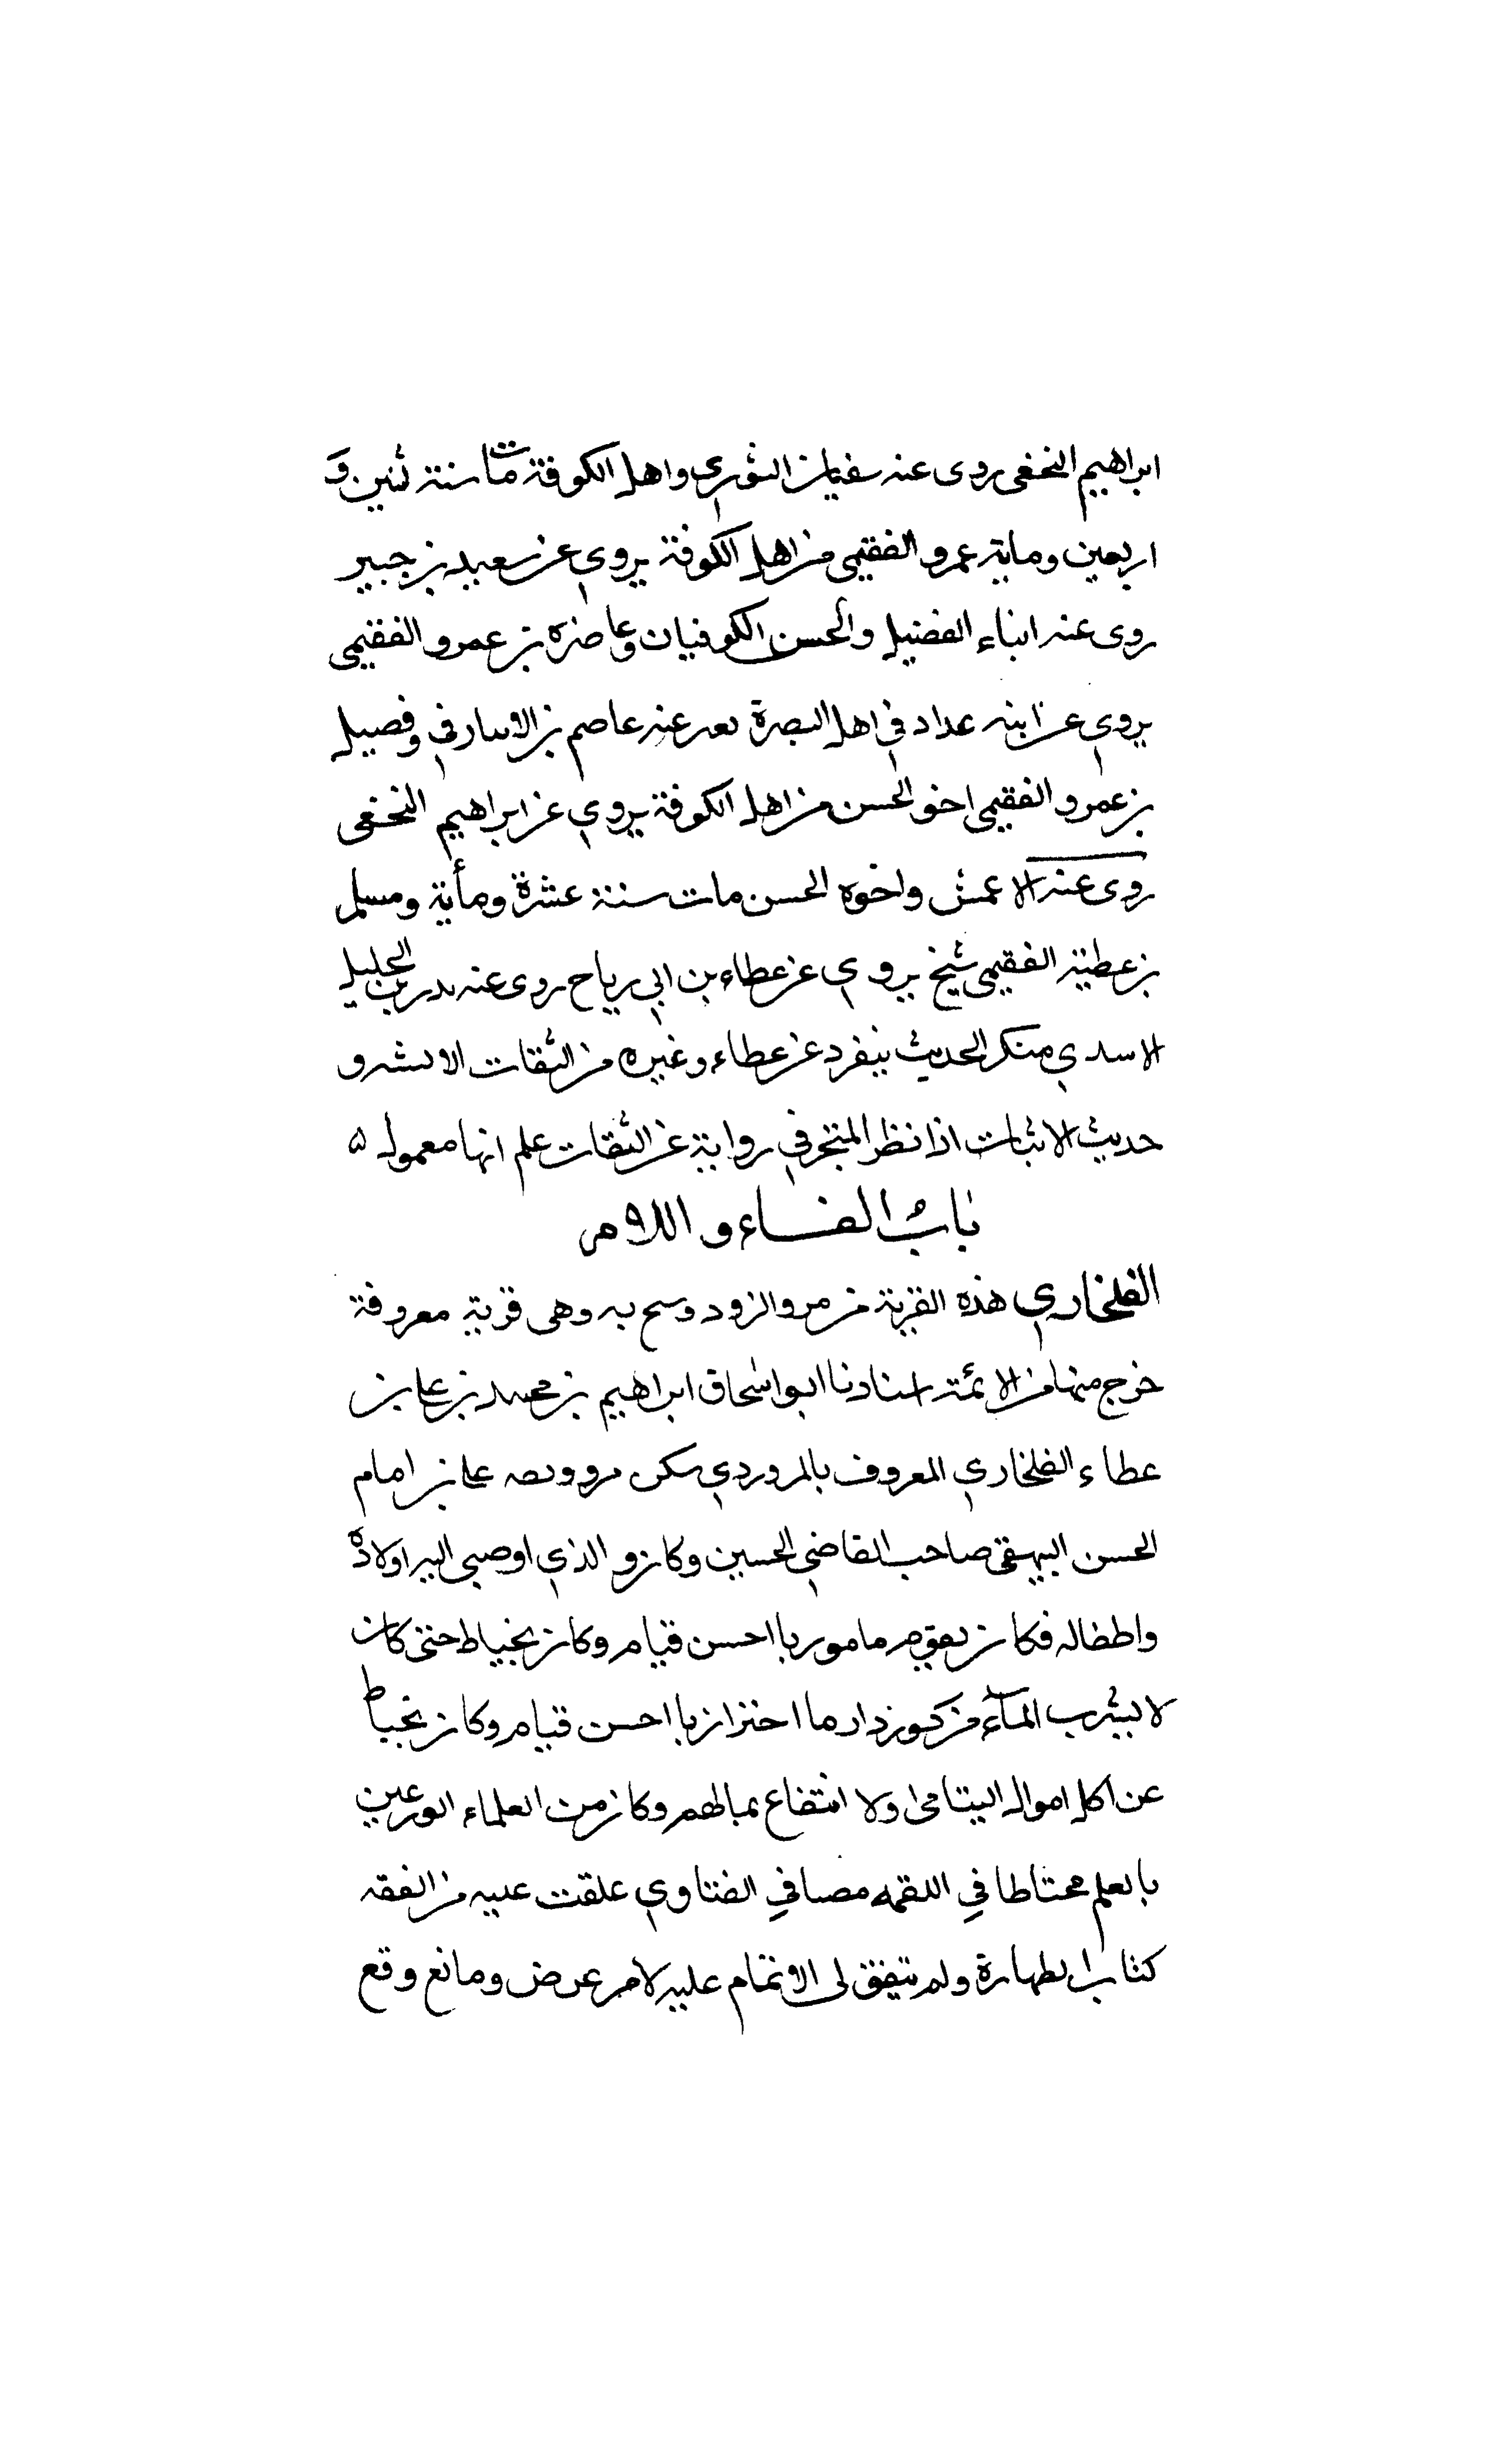 ابراهيم النخعى روى عنه سفيان الثوري واهل الكوفة مات سنة ثنين و
اربعين وماية عمرو الفقيمى من اهل الكوفة يروي عن سعيد بن جبير
روى عنه ابناء الفضيل والحسن الكوفيان وعاضره بن عمرو الفقيمى
يروي عن ابنه عداد في اهل البصرة عنه عاصم بن وفصيل
بن عمرو الفقيمى اخو الحسن من اهل الكوفة يروي عن ابراهيم النخعى
روى عنه الاعمش واخوه الحسن مات سنة عشرة ومأية ومسلم
بن عطية الفقيمى شيخ يروي عن عطاء بن ابي رياح روى عنه بدر بن الجليل
الاسدي منكر الحديث ينفرد عن عطاء وغيره من الثقات
حديث الاثبات اذا نظر المتجر في رواية عن الثقات علم انها معمول ۵
باب الفاء واللام
الفلخاري هذه القرية من مروالرود وسح به وهى قرية معروفة
خرج منها من الائمة استادنا ابو اسحاق ابراهيم بن محمد بن على بن
عطاء الفلخاري المعروف بالمروردي سكن مرو على بن امام
الحسن البيهقى صاحب القاضي الحسين وكان و الذي اوصى اليه اولاده
واطفاله فكان يقوم مامور با احسن قيام وكان يخياط حتى كان
لا يشرب المآء من كوز دار ما اختزان با احسن قيام وكان يخياط
عن اكل اموال اليتامى ولا انتفاع بمالهم وكان من العلماء الورعين
بالعلم محتاطا في اللقمه مصبا في الفتاوي علقت عليه من الفقه
كتاب الطهارة ولم يتفق لى الاتمام عليه لامر عرض ومانع وقع